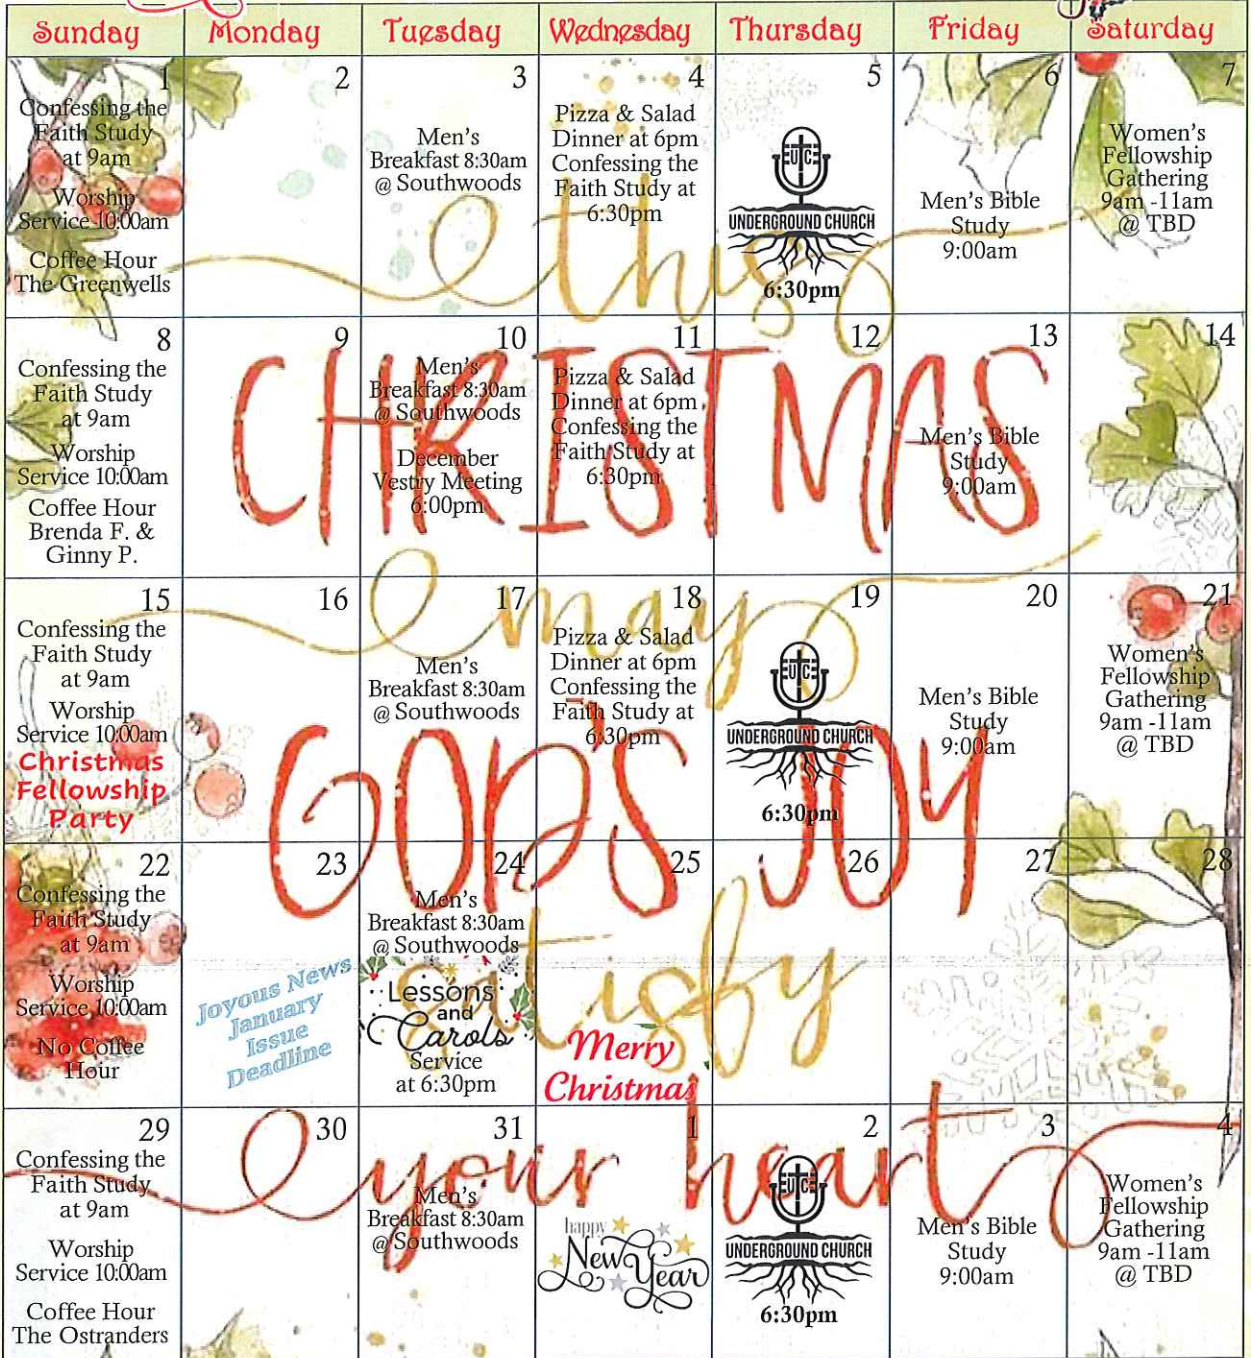 Sunday
Monday
Tuesday
Wednesday
Thursday
Friday
Saturday
1
Confessing the
Faith Study
at 9am
Worship
Service 10:00am
Coffee Hour
The Greenwells
2
3
Men's
Breakfast 8:30am
@ Southwoods
4
Pizza & Salad
Dinner at 6pm
Confessing the
Faith Study at
6:30pm
5
UNDERGROUND CHURCH
6:30pm
6
Men's Bible
Study
9:00am
7
Women's
Fellowship
Gathering
9am -11am
@ TBD
this
8
Confessing the
Faith Study
at 9am
Worship
Service 10:00am
Coffee Hour
Brenda F. &
Ginny P.
9
10
Men's
Breakfast 8:30am
@ Southwoods
December
Vestry Meeting
6:00pm
11
Pizza & Salad
Dinner at 6pm
Confessing the
Faith Study at
6:30pm
12
13
Men's Bible
Study
9:00am
14
CHRISTMAS
15
Confessing the
Faith Study
at 9am
Worship
Service 10:00am
Christmas
Fellowship
Party
16
17
Men's
Breakfast 8:30am
@ Southwoods
18
Pizza & Salad
Dinner at 6pm
Confessing the
Faith Study at
6:30pm
19
UNDERGROUND CHURCH
6:30pm
20
Men's Bible
Study
9:00am
21
Women's
Fellowship
Gathering
9am -11am
@ TBD
may
GOD'S JOY
22
Confessing the
Faith Study
at 9am
Worship
Service 10:00am
No Coffee
Hour
23
Joyous News
January
Issue
Deadline
24
Men's
Breakfast 8:30am
@ Southwoods
Lessons
and
Carols
Service
at 6:30pm
25
Merry
Christmas
26
27
28
satisfy
29
Confessing the
Faith Study
at 9am
Worship
Service 10:00am
Coffee Hour
The Ostranders
30
31
Men's
Breakfast 8:30am
@ Southwoods
1
happy
New Year
2
UNDERGROUND CHURCH
6:30pm
3
Men's Bible
Study
9:00am
4
Women's
Fellowship
Gathering
9am -11am
@ TBD
your heart